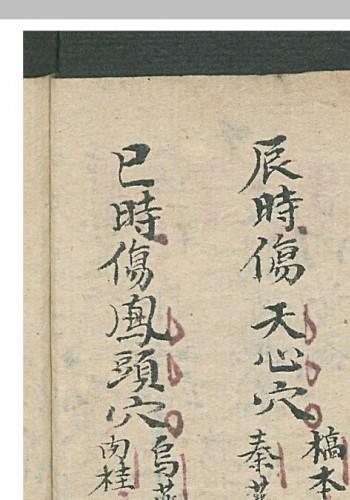 辰時傷天心穴
槁本
秦
巳時傷鳳頭穴
烏
肉桂